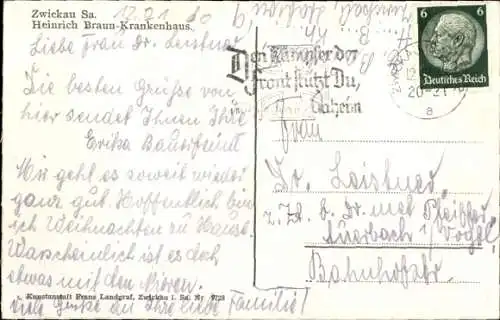 Zwickau Sa.
Heinrich Braun-Krankenhaus.
Liebe Frau Dr. Leistner
Die besten Grüsse von
hier sendet Ihnen Ihre
Erika Bauerfeind
Mir geht es soweit wieder
ganz gut. Hoffentlich bin
ich Weihnachten zu Hause.
Warscheinlich ist es doch
etwas mit den Nieren.
Viele Grüße an Ihre liebe Familie!
Kunstanstalt Franz Landgraf, Zwickau i. Sa. Nr.
Den Kämpfer der
Front stützt Du,
daheim
6 6
Deutsches Reich
20-21
a
Frau
Dr. Leistner
z. Zt. b. Dr. med
Auerbach i. Vogtl.
Bahnhofstr